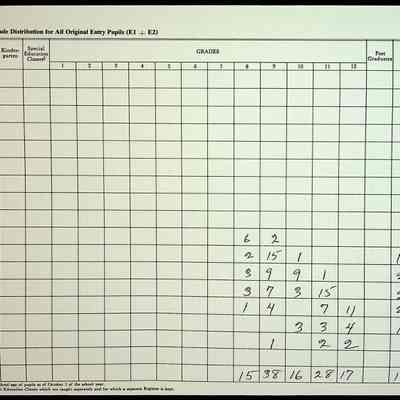 ade Distribution for All Original Entry Pupils (E1 + E2)
Kinder- Special GRADES Post
garten Education Graduates
Classes²
1 2 3 4 5 6 7 8 9 10 11 12
6 2
2 15 1
3 9 9 1
3 7 3 15
1 4 7 11
3 3 4
1 2 2
15 38 16 28 17
age of pupils as of October 1 of the school year.
Education Classes which are taught separately and for which a separate Register is kept.